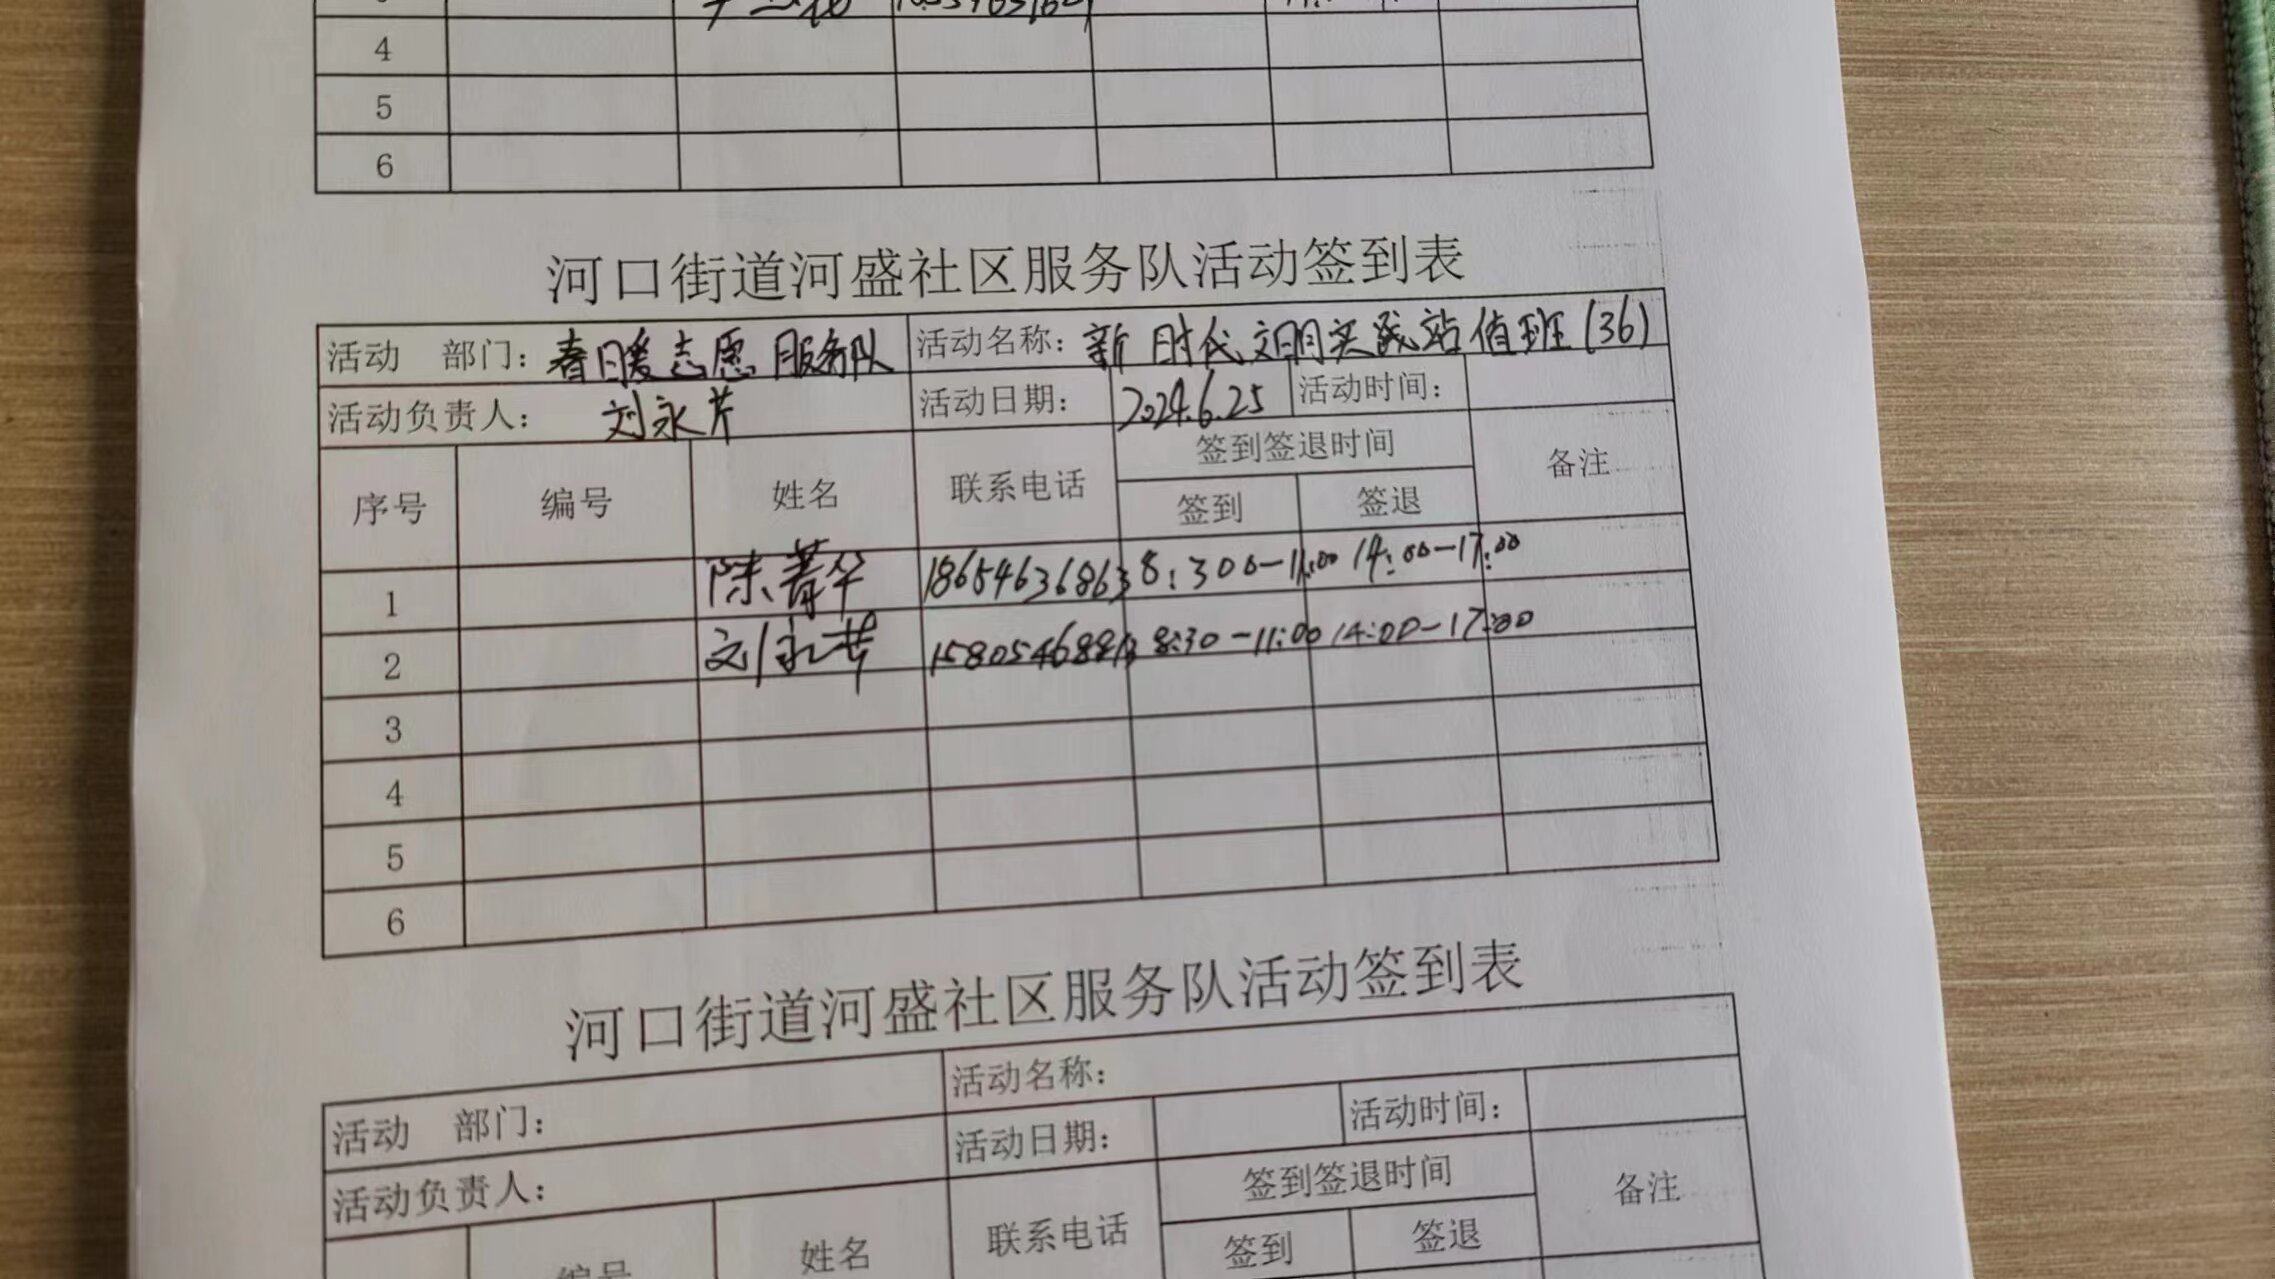 4
5
6
河口街道河盛社区服务队活动签到表
活动 部门：春暖志愿服务队 活动名称：新时代文明实践站值班(36)
活动负责人： 刘永芹 活动日期： 2024.6.25 活动时间：
序号 编号 姓名 联系电话 签到签退时间 备注
签到 签退
1 陈菁华 18654636863 8:300-11:00 14:00-17:00
2 刘永芹 8:30-11:00 14:00-17:00
3
4
5
6
河口街道河盛社区服务队活动签到表
活动 部门： 活动名称：
活动负责人： 活动日期： 活动时间：
编号 姓名 联系电话 签到签退时间 备注
签到 签退